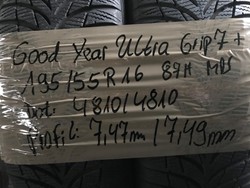 Good Year Ultra Grip 7+
195/55 R16 87H M+S
Dot: 4810/4810
Profil: 7,47mm/7,49mm